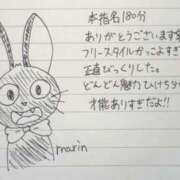 本指名180分
ありがとうございます
フリースタイルかっこよすぎ
正直びっくりした。
どんどん魅力ひけちらか
才能ありすぎだよ!!
marin